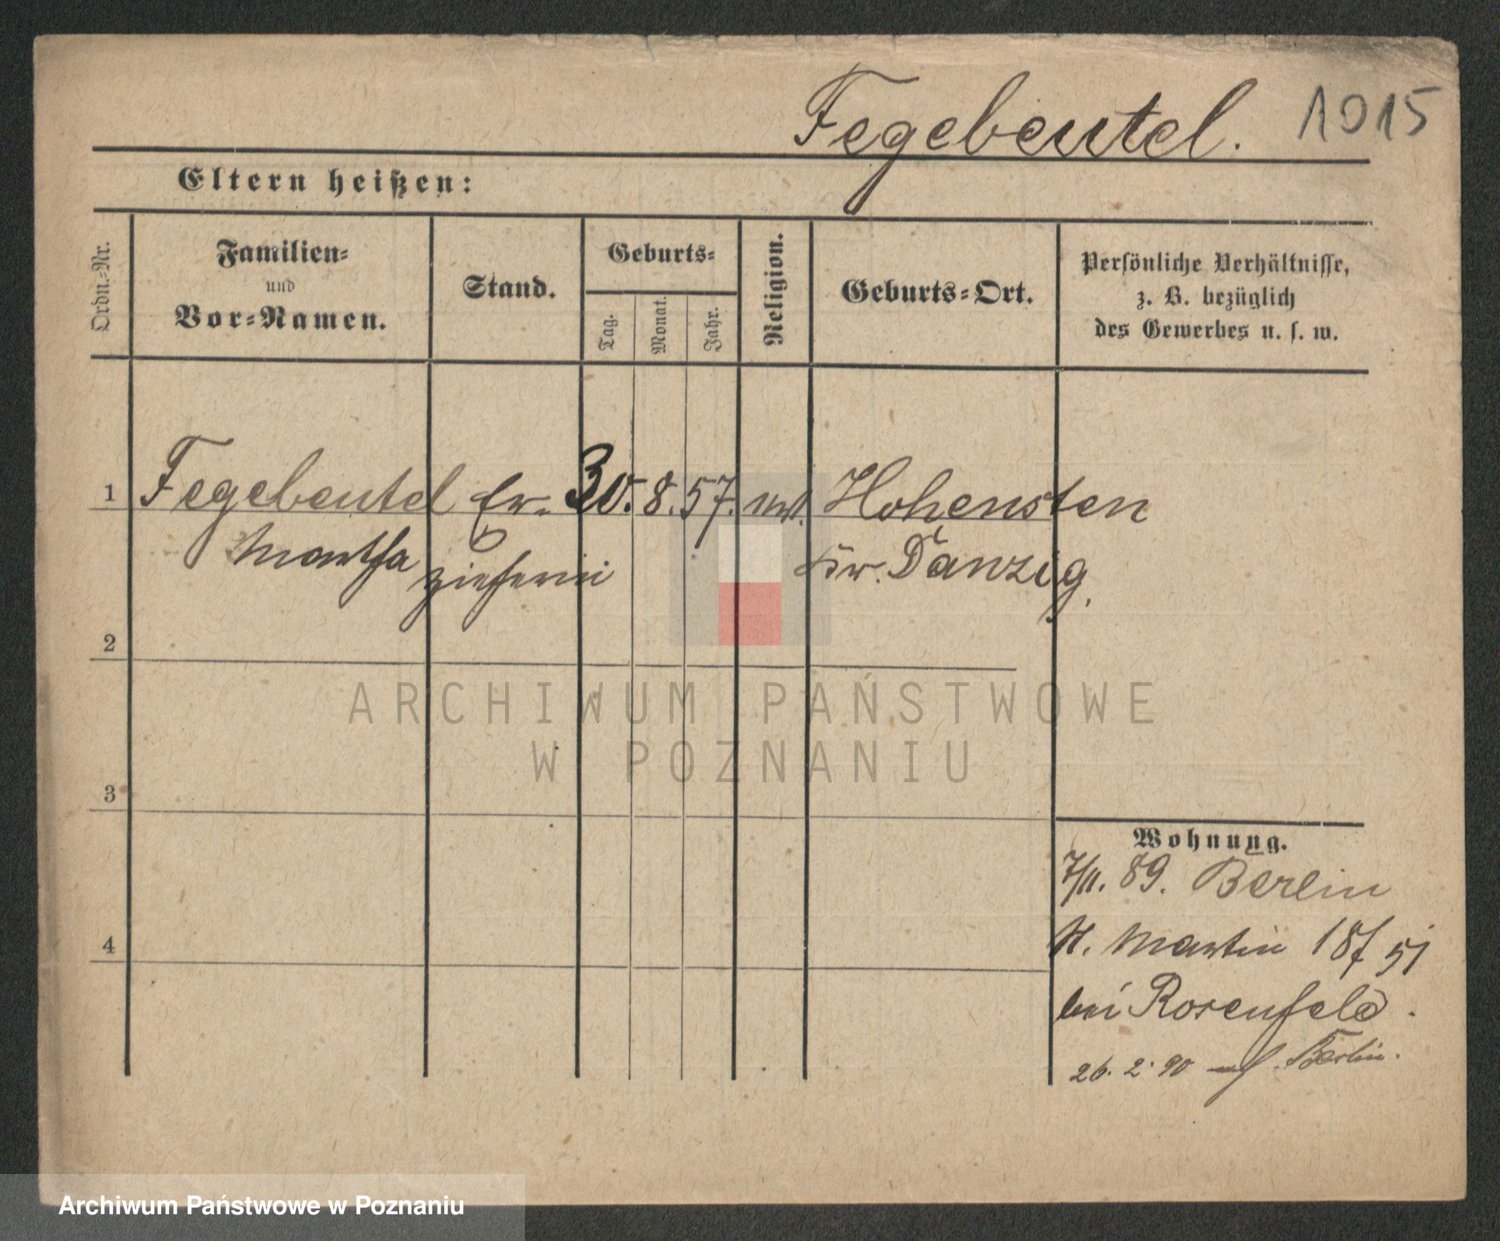 Fegebeutel. 1015
Eltern heißen:
Ordn.-Nr.
Familien-
und
Vor-Namen.
Stand.
Geburts-
Tag.
Monat.
Jahr.
Religion.
Geburts-Ort.
Persönliche Verhältnisse,
z. B. bezüglich
des Gewerbes u. s. w.
1 Fegebeutel Er- 30. 8. 57. Hohensten
Martha zieherin Kr. Danzig.
2
3
4
Wohnung.
7/11. 89. Berlin
St. Martin 18
bei Rosenfeld.
26. 2. 90 Berlin.
ARCHIWUM PAŃSTWOWE
W POZNANIU
Archiwum Państwowe w Poznaniu